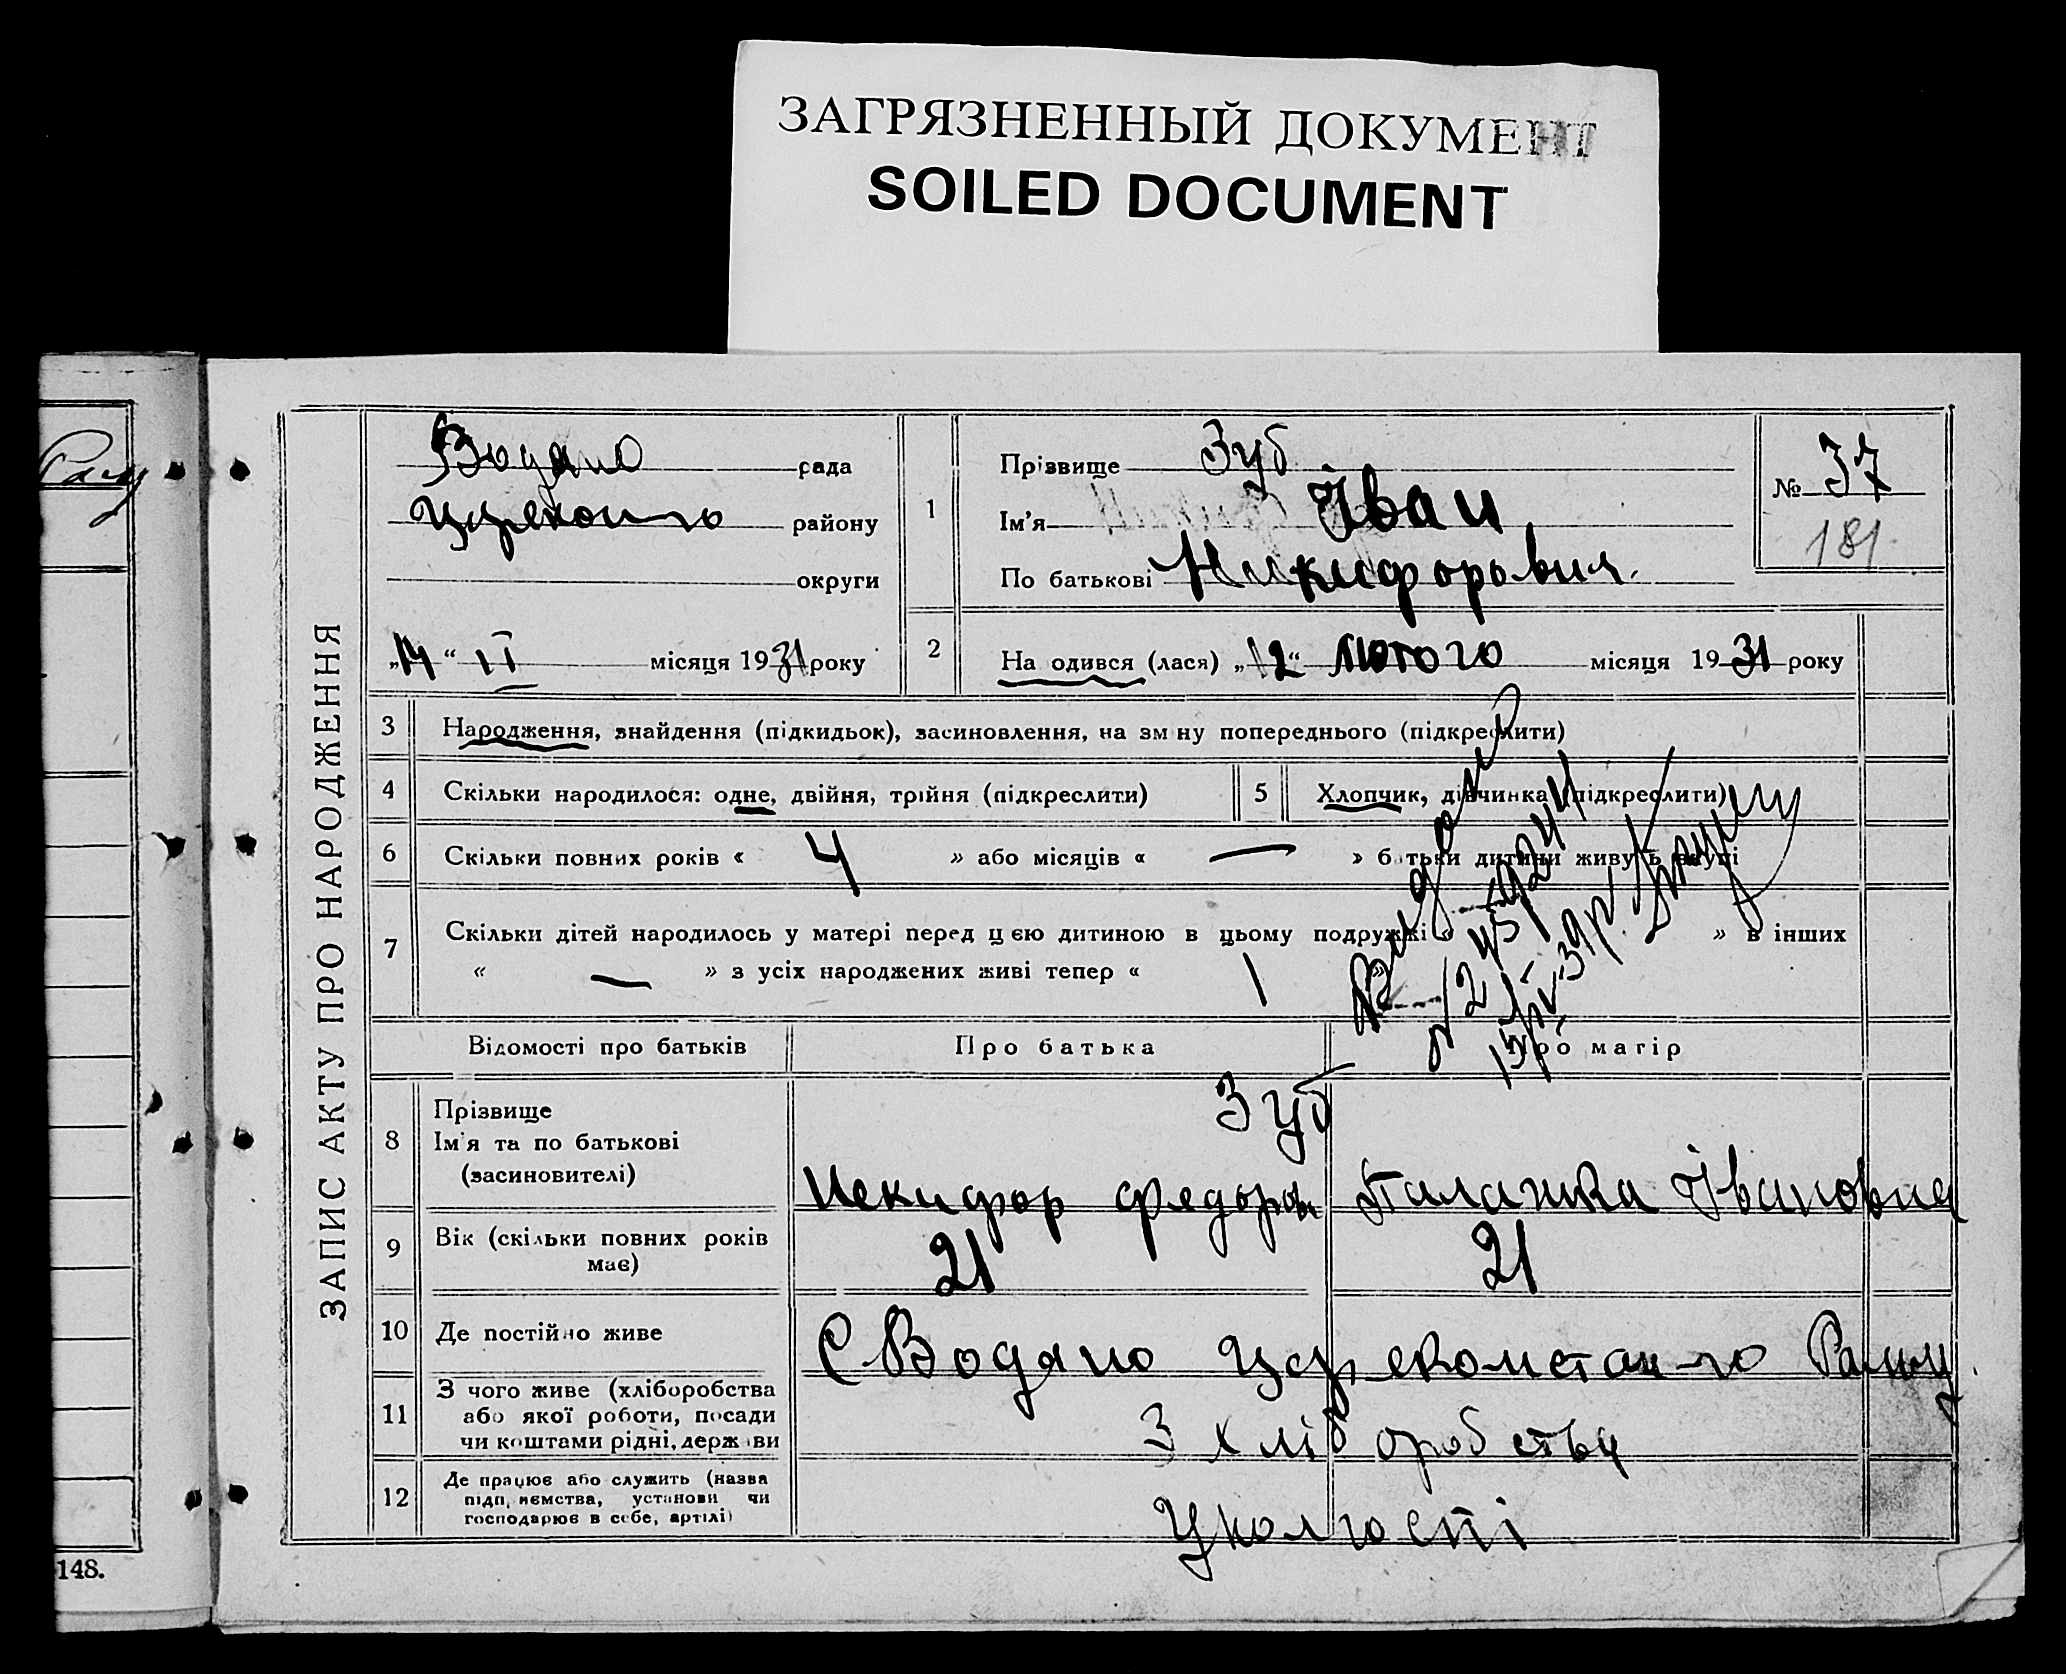 ЗАГРЯЗНЕННЫЙ ДОКУМЕНТ
SOILED DOCUMENT
ЗАПИС АКТУ ПРО НАРОДЖЕННЯ
Водяно рада
району
округи
„14“ II місяця 1931 року
1
Прізвище Зуб
Ім'я Іван
По батькові Никифорович.
№ 37
181
2
На одився (лася) „12“ лютого місяця 1931 року
3 Народження, знайдення (підкидьок), засиновлення, на зм ну попереднього (підкреслити)
4 Скільки народилося: одне, двійня, трійня (підкреслити)
5 Хлопчик, дівчинка (підкреслити)
6 Скільки повних років « 4 » або місяців « — » батьки дитини живуть вкупі
7 Скільки дітей народилось у матері перед цією дитиною в цьому подружжі « » в інших
« — » з усіх народжених живі тепер « 1 »
Відомості про батьків Про батька Про матір
8 Прізвище
Ім'я та по батькові
(засиновителі)
Зуб
Некифор Федоров Палажка Івановна
9 Вік (скільки повних років
має)
21 21
10 Де постійно живе
С Водяно
11 З чого живе (хліборобства
або якої роботи, посади
чи коштами рідні, держави
З хліборобства
12 Де працює або служить (назва
підприємства, установи чи
господарює в себе, артілі)
148.